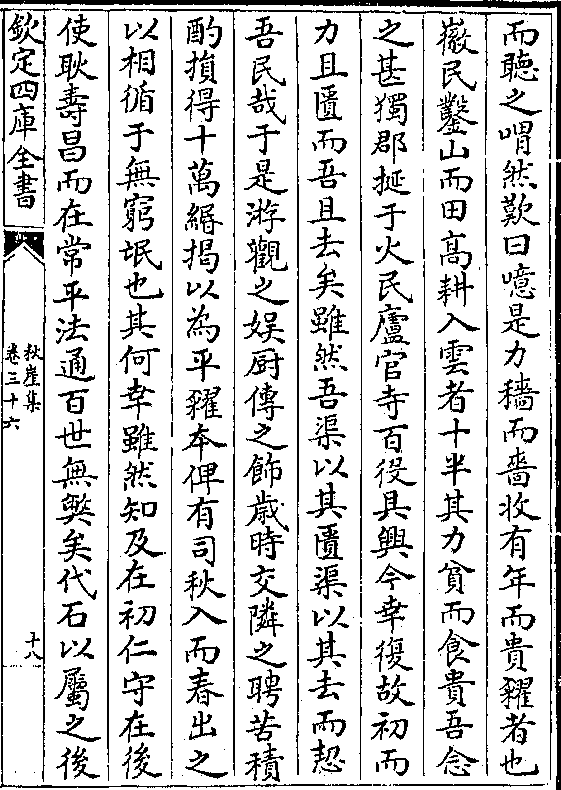 而聽之喟然歎曰噫是力穡而嗇收有年而貴糴者也
嶶民鑿山而田高耕入雲者十半其力貧而食貴吾念
之甚獨郡挻于火民廬官寺百役具興今幸復故初而
力且匱而吾且去矣雖然吾渠以其匱渠以其去而恝
吾民哉于是游觀之娱厨傳之飾歳時交隣之聘苦積
酌損得十萬緡揭以為平糴本俾有司秋入而春出之
以相循于無窮氓也其何幸雖然知及在初仁守在後
使耿壽昌而在常平法通百世無弊矣代石以屬之後
欽定四庫全書
秋崖集
卷三十六
十八